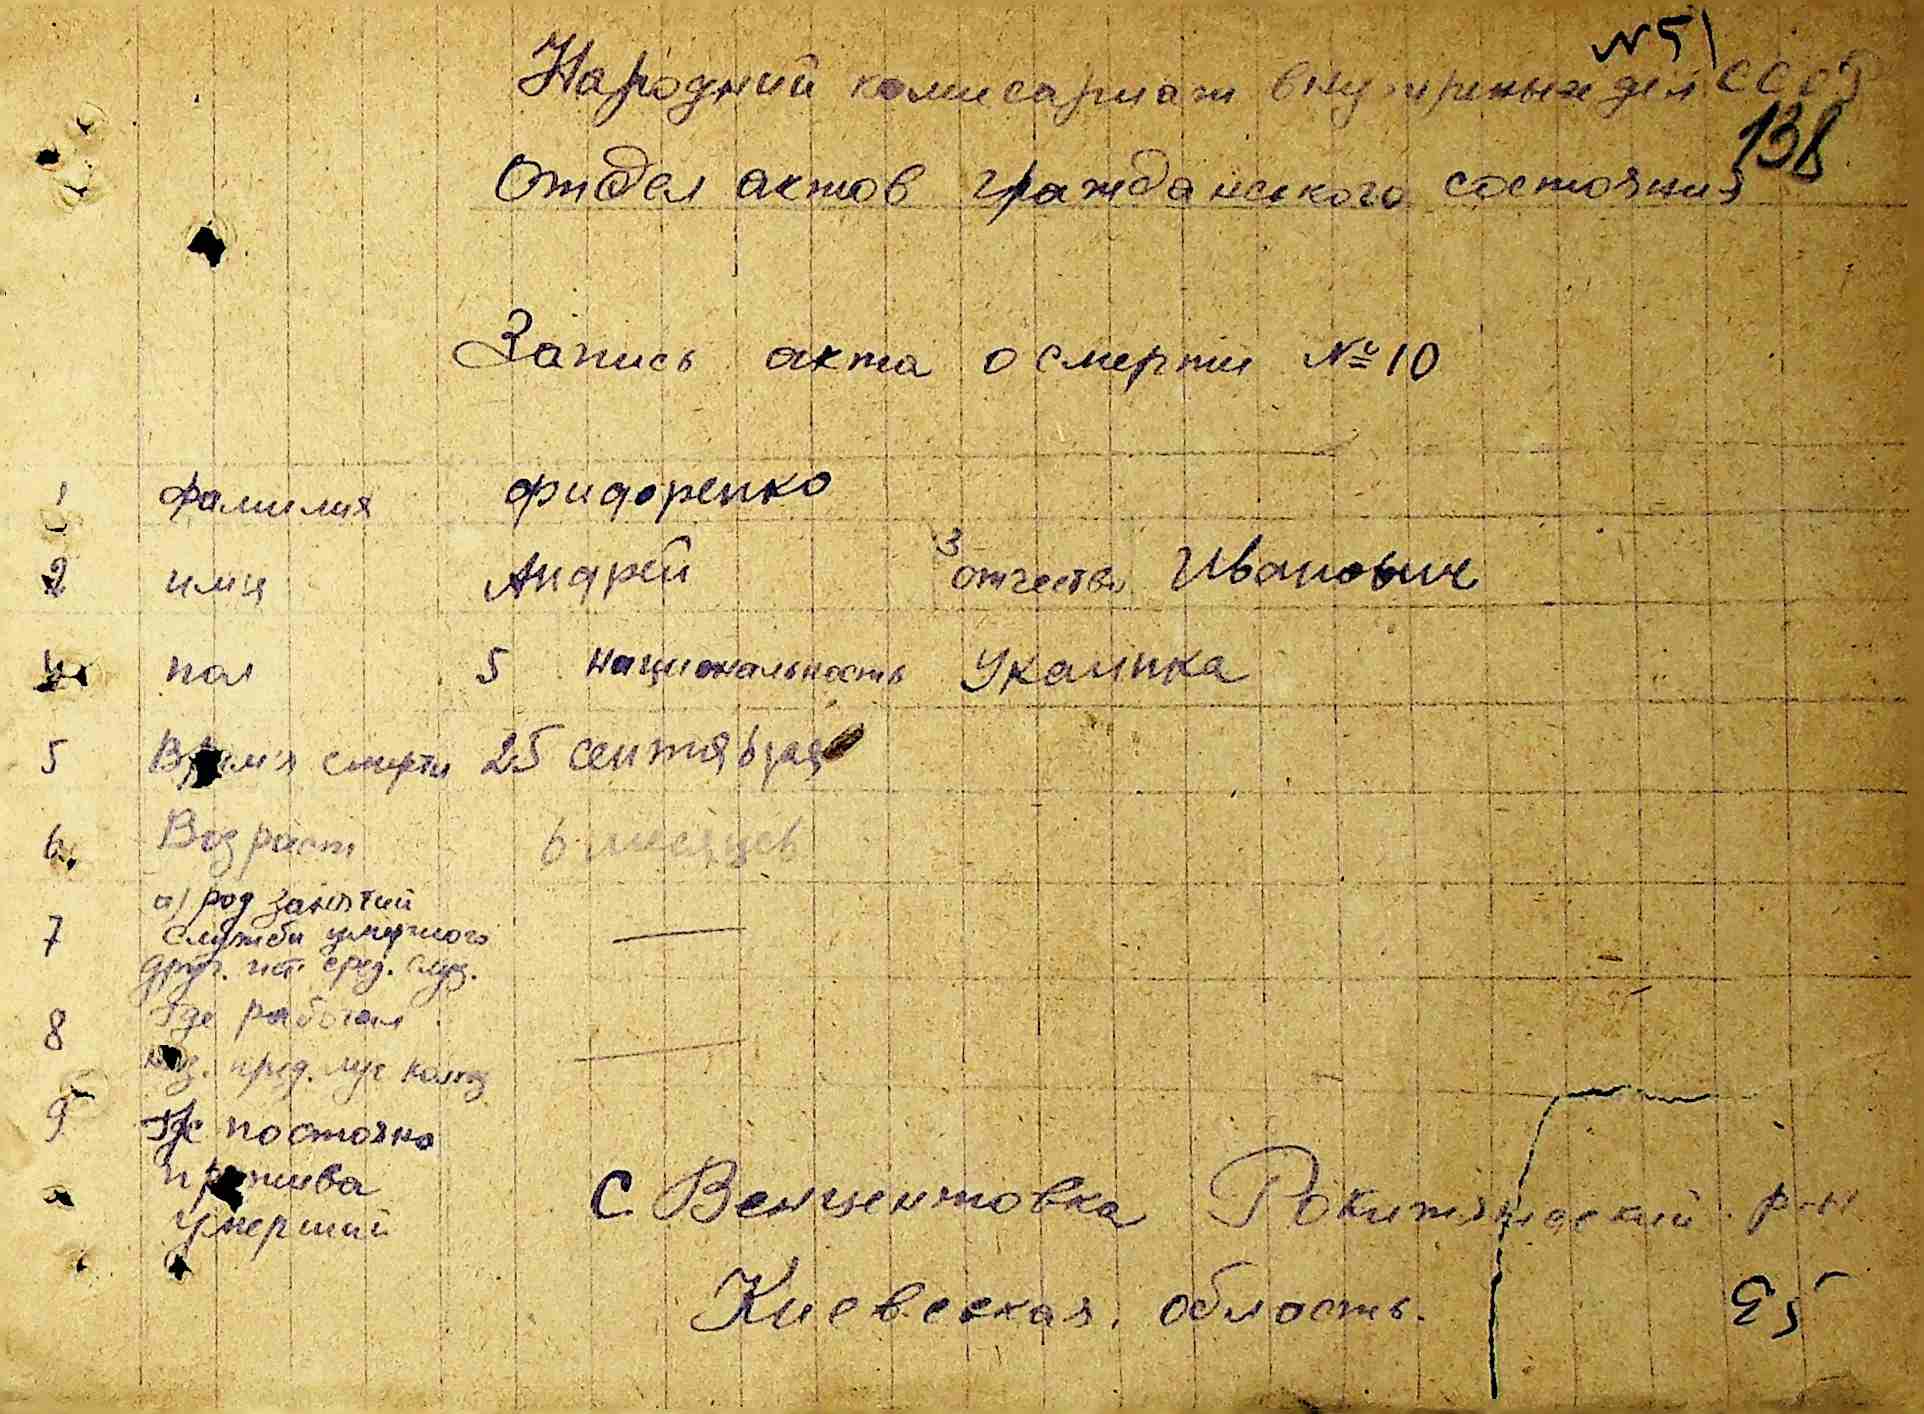 №51
Народний комисариат внутреных дел СССР
138
Отдел актов гражданського состояния
Запись акта о смерти № 10
1 фамилия фидоренко
2 имя Андрей 3 отчество Иванович
4 пол 5 национальность Украинка
5 Время смерти 25 сентября
6. Возраст 6 месяцев
а) род занятий
7 службы умершого —
друг. ист. сред. сущ.
8 Где работал —
наз. пред.
9 Где постояно
прожива
Умерший с. Венцентовка Рокитянский р-н
Киевская область.